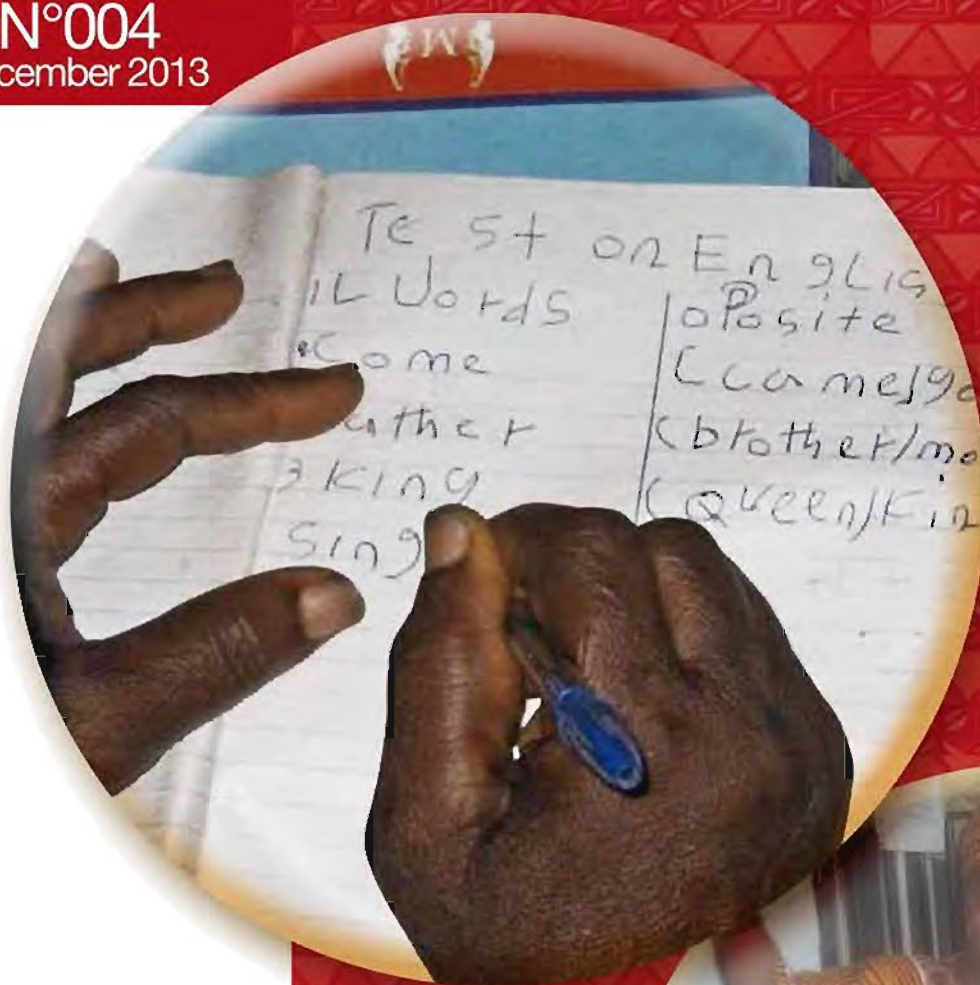 N°004
cember 2013
Test on Englis
Words | oposite
Come | (came/go
ather | (brother/mo
3 King | (Queen/Kin
Sing